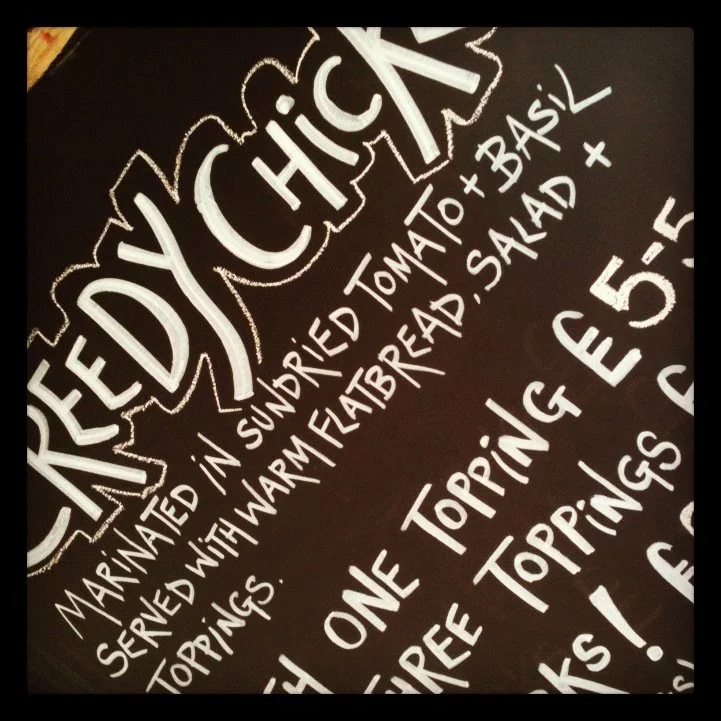 REEDY CHICK
MARINATED IN SUNDRIED TOMATO + BASIL
SERVED WITH WARM FLATBREAD, SALAD +
TOPPINGS.
H ONE TOPPING £5-5
THREE TOPPINGS £
KS! £